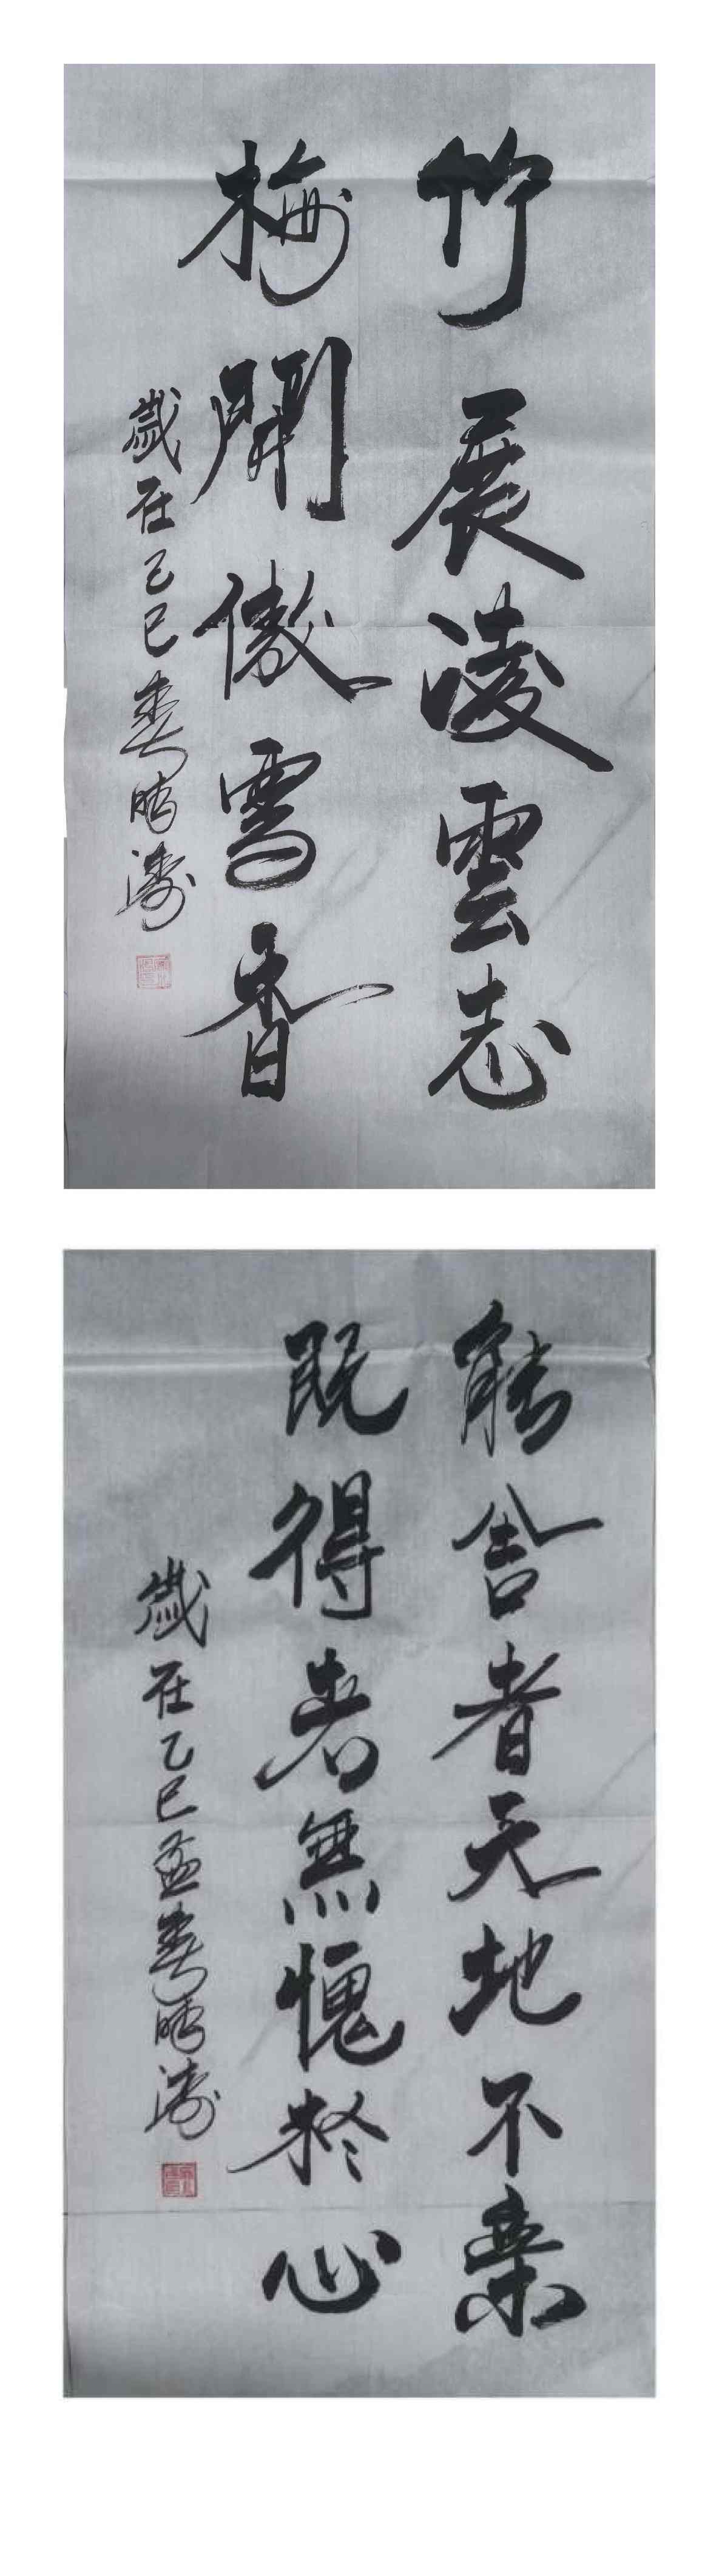 竹展凌雲志
梅開傲雪香
歲在乙巳春晴濤
能舍者天地不棄
既得者無愧於心
歲在乙巳孟春晴濤